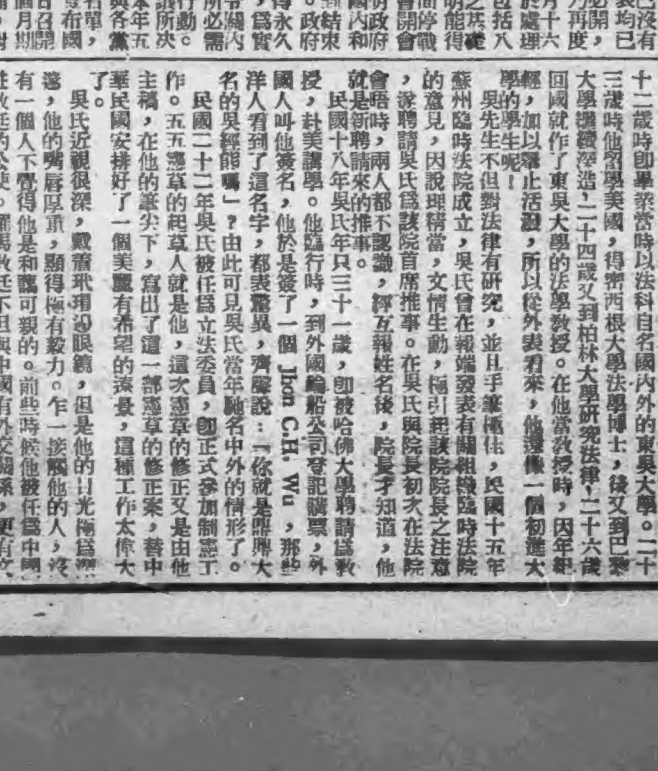 十二歲時卽畢業當時以法科目名國內外的東吳大學。二十
三歲時他留學美國,得密西根大學法學博士,後又到巴黎
大學繼續深造,二十四歲又到柏林大學研究法律,二十六歲
回國就作了東吳大學的法學敎授。在他當敎授時,因年紀
輕,加以舉止活潑,所以從外表看來,他還像一個初進大
學的學生呢!
吳先生不但對法律有硏究,並且手筆極佳,民國十五年
蘇州臨時法院成立,吳氏曾在報端發表有關組織臨時法院
的意見,因說理精當,文情生動,極引起該院院長之注意
,遂聘請吳氏爲該院首席推事。在吳氏與院長初次在法院
會晤時,兩人都不認識,經互報姓名後,院長才知道,他
就是新聘請來的推事。
民國十八年吳氏年只三十一歲,卽被哈佛大學聘請爲敎
授,赴美講學。他臨行時,到外國輪船公司登記購票,外
國人叫他簽名,他於是簽了一個 Jhon C.H. Wu ,那些
洋人看到了這名字,都表驚異,齊聲說:「你就是鼎鼎大
名的吳經熊嗎」?由此可見吳氏當年馳名中外的情形了。
民國二十二年吳氏被任爲立法委員,卽正式參加制憲工
作。五五憲草的起草人就是他,這次憲草的修正又是由他
主稿,在他的筆尖下,寫出了這一部憲草的修正案,替中
華民國安排好了一個美麗有希望的遠景,這種工作太偉大
了。
吳氏近視很深,戴着玳瑁邊眼鏡,但是他的目光極爲深
邃,他的嘴唇厚重,顯得極有毅力。乍一接觸他的人,沒
有一個人不覺得他是和藹可親的。前些時候他被任爲中國